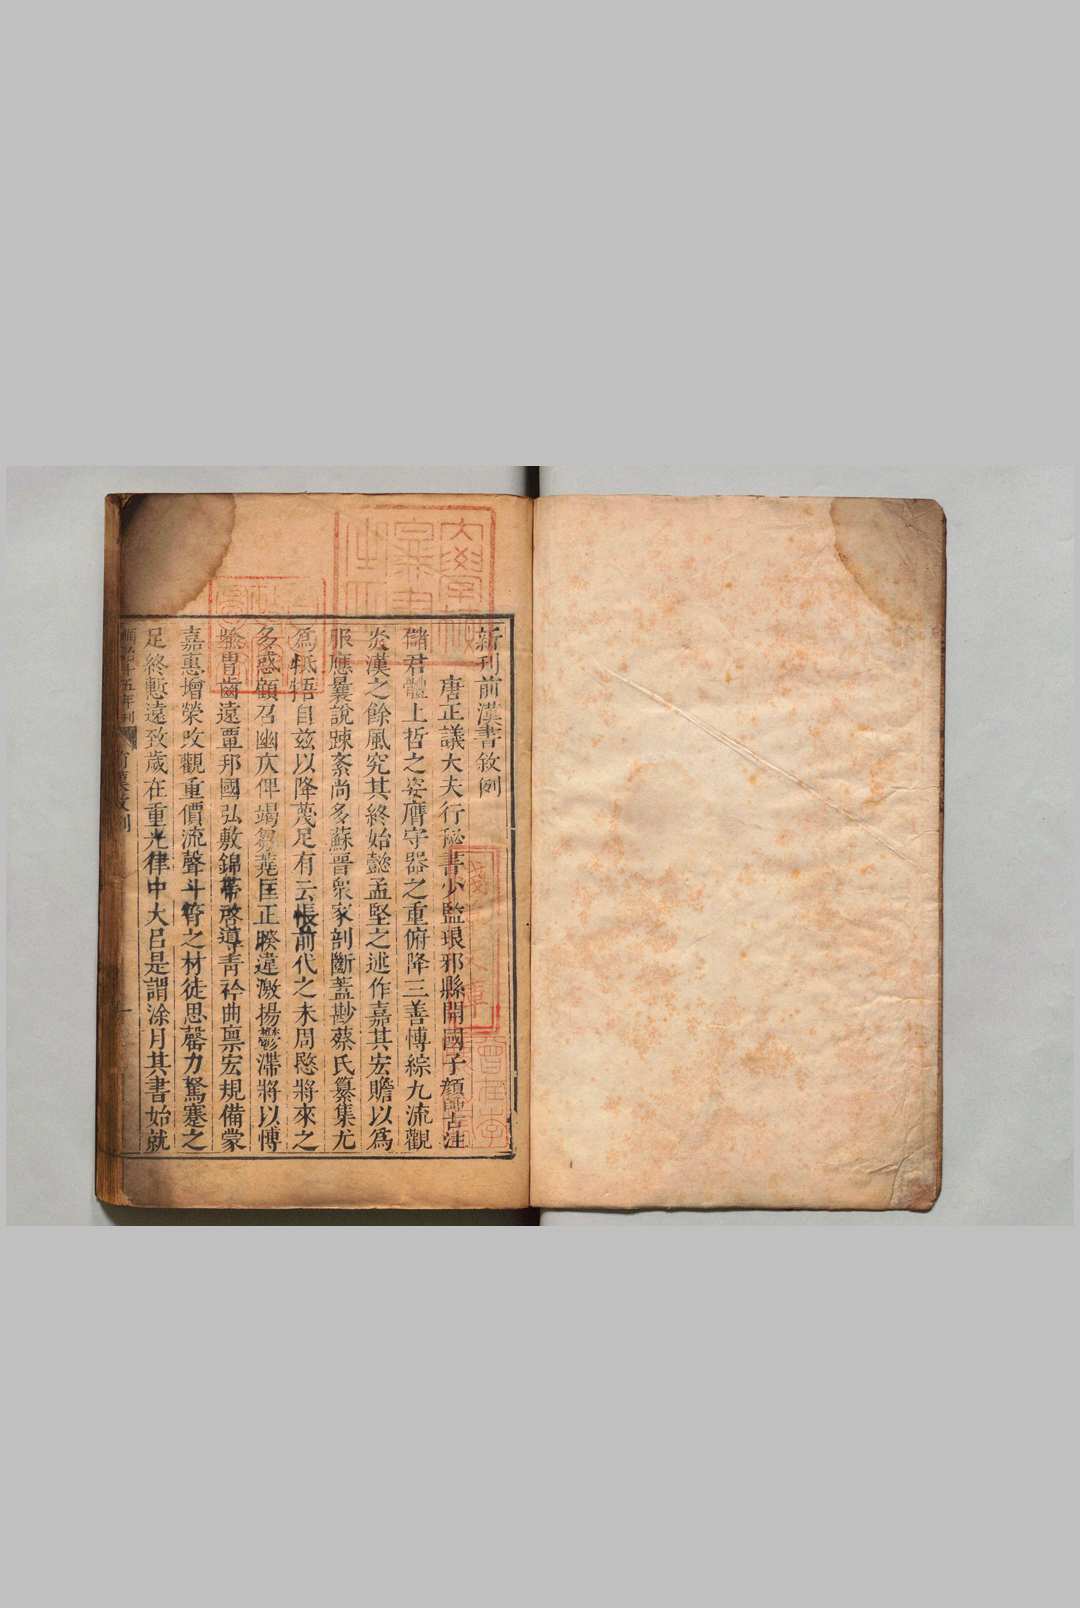 新刊前漢書敘例
唐正議大夫行秘書少監琅邪縣開國子顏師古注
儲君體上哲之姿膺守器之重俯降三善博綜九流觀
炎漢之餘風究其終始懿孟堅之述作嘉其宏贍以爲
服應曩說踈紊尚多蘇晉衆家剖斷蓋尠蔡氏纂集尤
爲牴牾自玆以降蔑足有云悵前代之未周愍將來之
多惑顧召幽仄俾竭芻蕘匡正睽違激揚鬱滯將以博
喻胄齒遠覃邦國弘敷錦帶啓導青衿曲禀宏規備蒙
嘉惠增榮改觀重價流聲斗筲之材徒思罄力駑蹇之
足終慙遠致歲在重光律中大吕是謂涂月其書始就
五年刊
前漢敘例
一